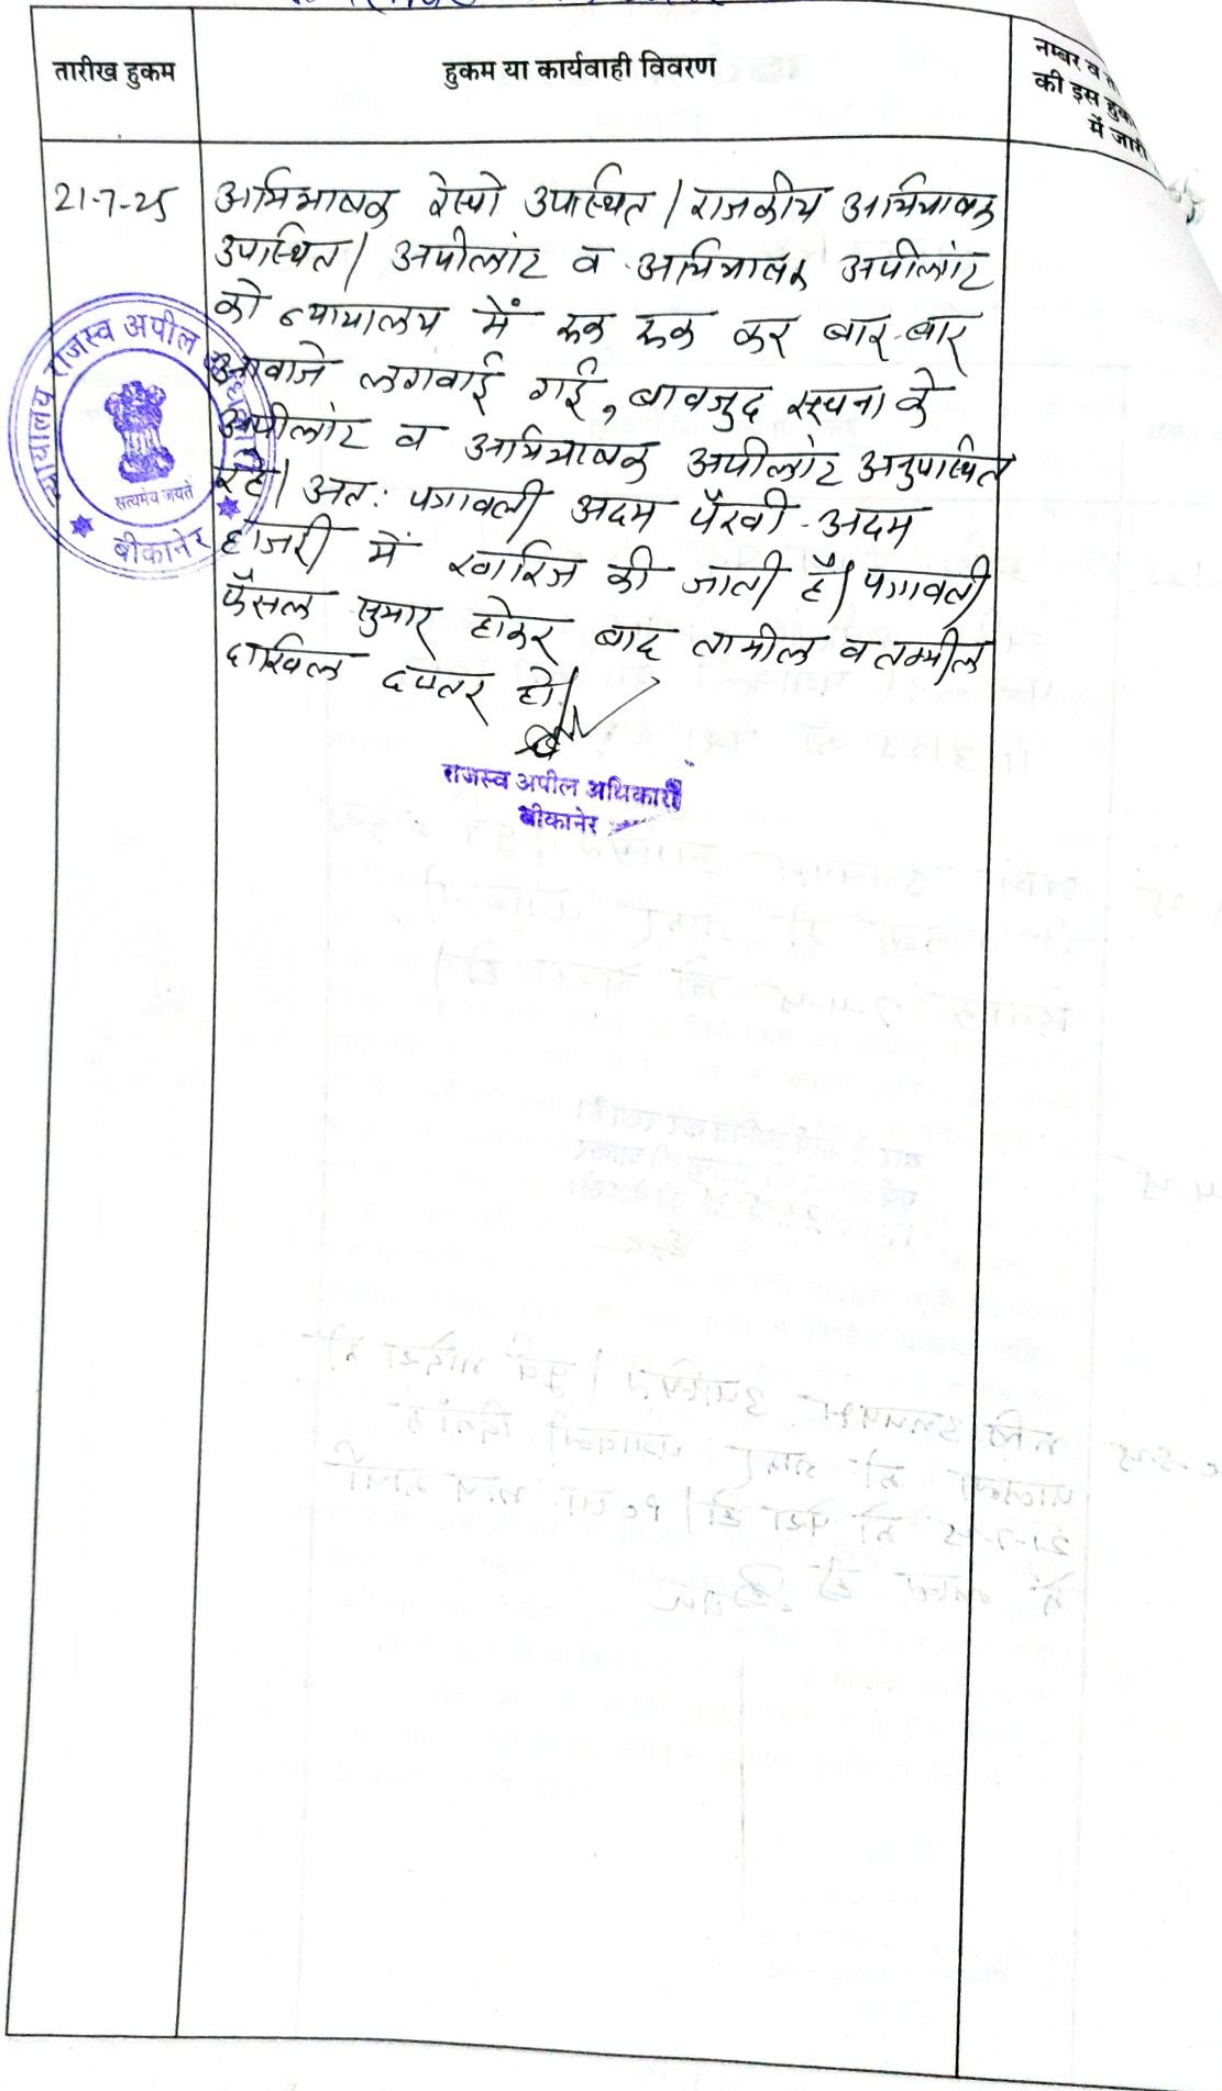 तारीख हुकम
हुकम या कार्यवाही विवरण
नम्बर व
की इस
में जारी
21-7-25
अभिभाषक रेस्पो उपस्थित। राजकीय अभिभाषक
उपस्थित। अपीलांट व अभिभाषक अपीलांट
को न्यायालय में रूक रूक कर बार-बार
आवाजे लगवाई गई, बावजुद सूचना के
अपीलांट व अभिभाषक अपीलांट अनुपस्थित
रहे। अत: पत्रावली अदम पैरवी अदम
हाजरी में खारिज की जाती है। पत्रावली
फैसल सुमार होकर बाद तामील व तकमील
दाखिल दफ्तर हो।
राजस्व अपील अधिकारी
बीकानेर
न्यायालय राजस्व अपील
सत्यमेव जयते
बीकानेर